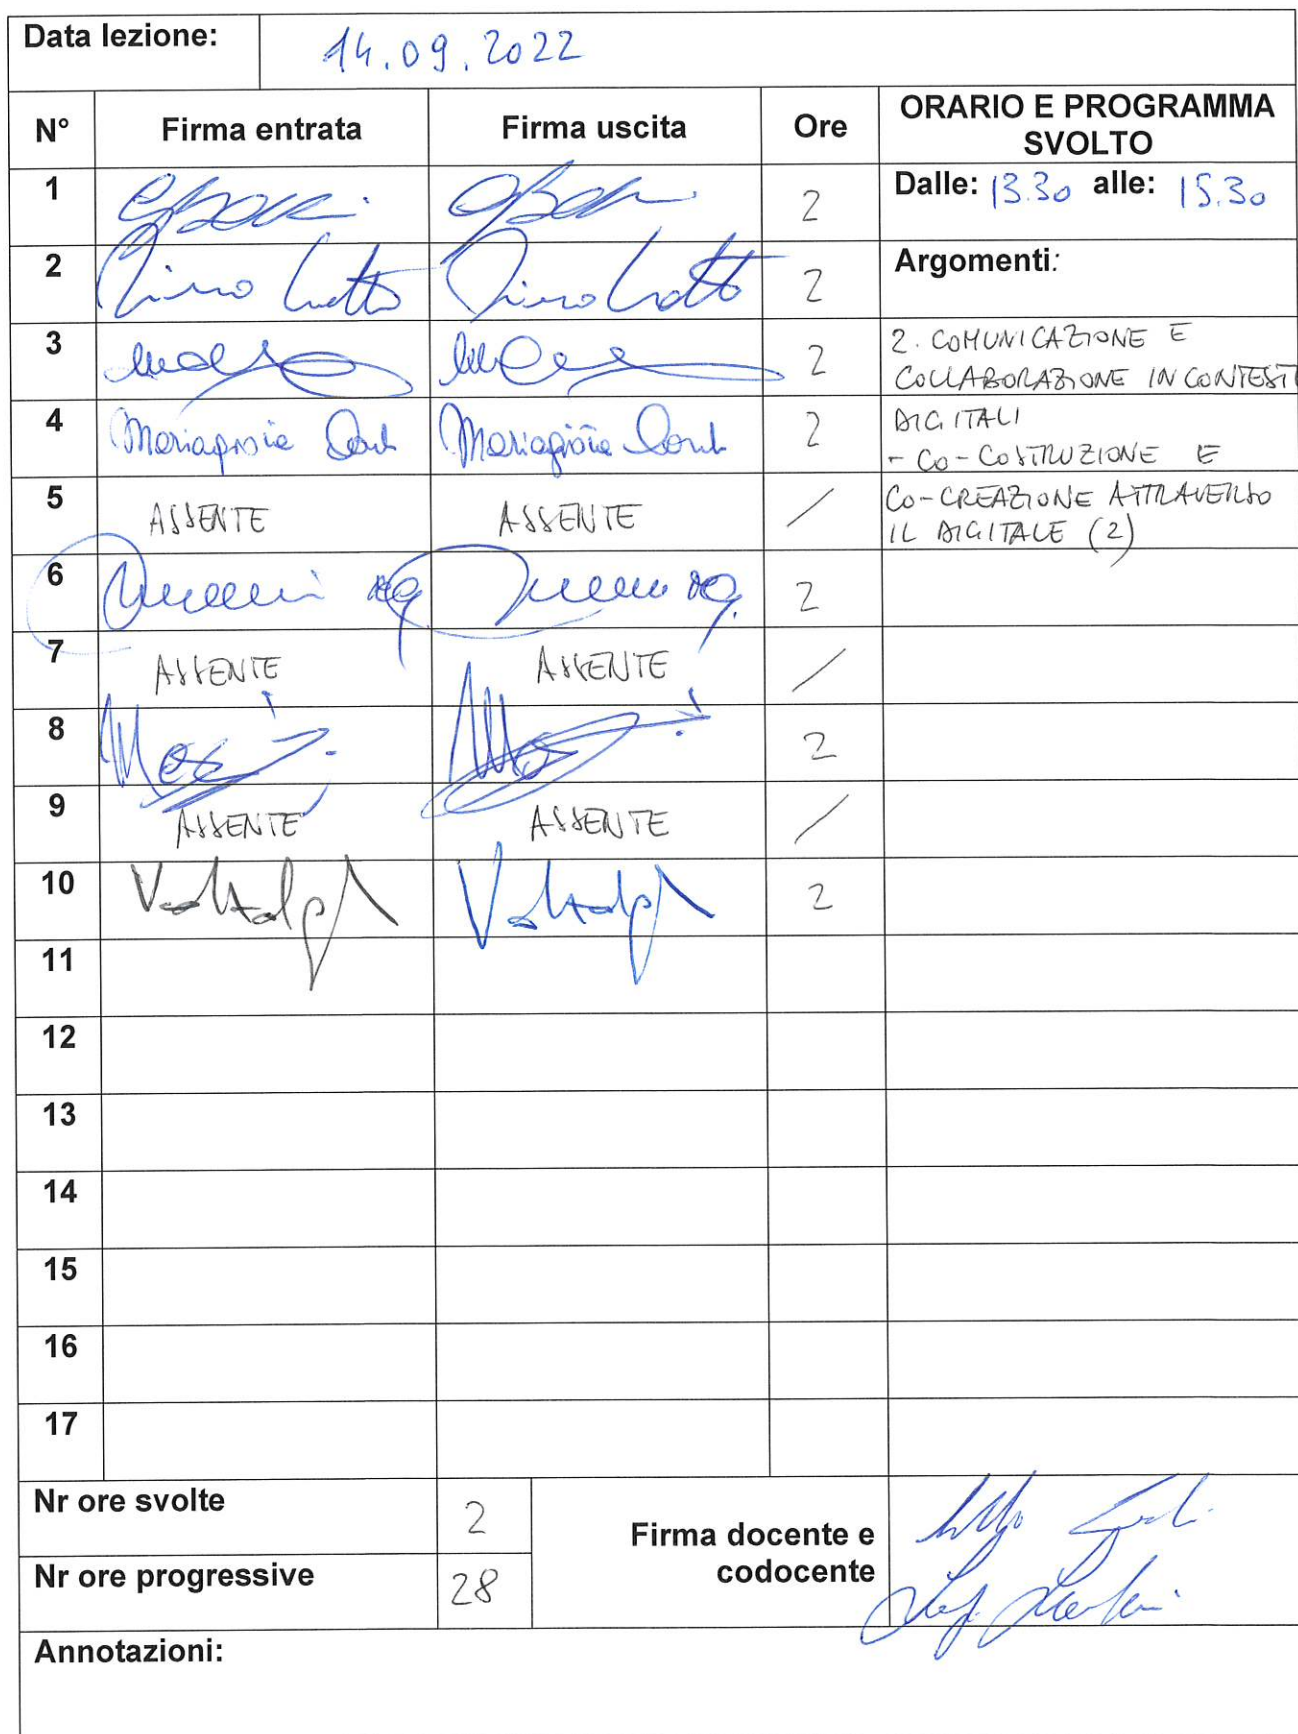 Data lezione: 14.09.2022
N° Firma entrata Firma uscita Ore ORARIO E PROGRAMMA
SVOLTO
1 2 Dalle: 13.30 alle: 15.30
2 2 Argomenti:
3 2 2. COMUNICAZIONE E
COLLABORAZIONE IN CONTESTI
4 Mariagrazia Mariagrazia 2 DIGITALI
- CO-COSTRUZIONE E
5 ASSENTE ASSENTE / CO-CREAZIONE ATTRAVERSO
IL DIGITALE (2)
6 2
7 ASSENTE ASSENTE /
8 2
9 ASSENTE ASSENTE /
10 2
11
12
13
14
15
16
17
Nr ore svolte 2
Firma docente e
codocente
Nr ore progressive 28
Annotazioni: